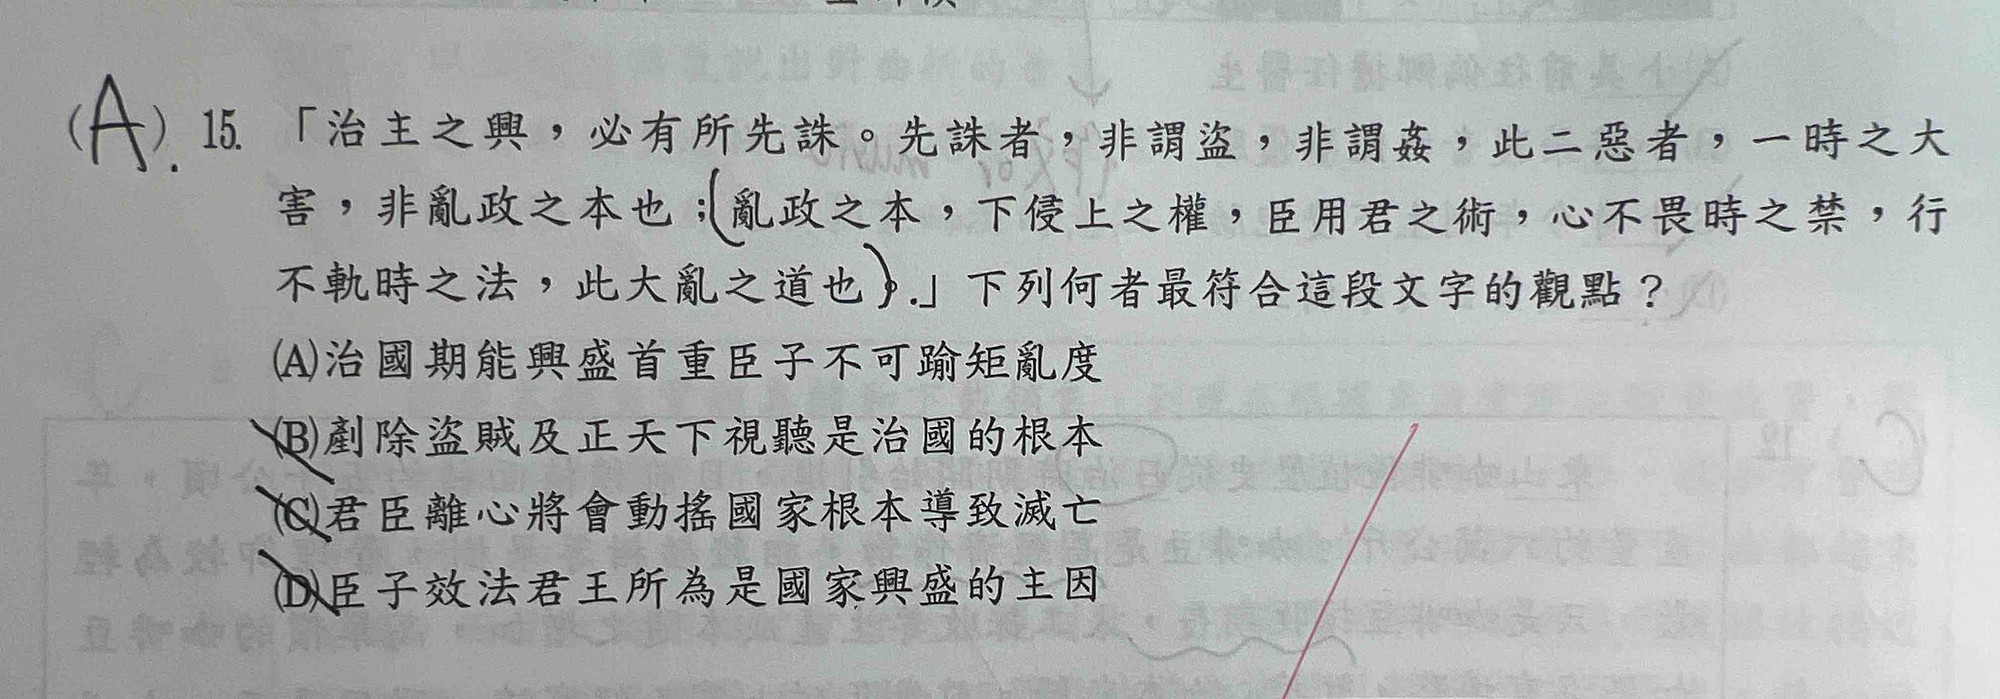 (A). 15. 「治主之興，必有所先誅。先誅者，非謂盜，非謂姦，此二惡者，一時之大
害，非亂政之本也；(亂政之本，下侵上之權，臣用君之術，心不畏時之禁，行
不軌時之法，此大亂之道也)。」下列何者最符合這段文字的觀點？
(A)治國期能興盛首重臣子不可踰矩亂度
(B)剷除盜賊及正天下視聽是治國的根本
(C)君臣離心將會動搖國家根本導致滅亡
(D)臣子效法君王所為是國家興盛的主因